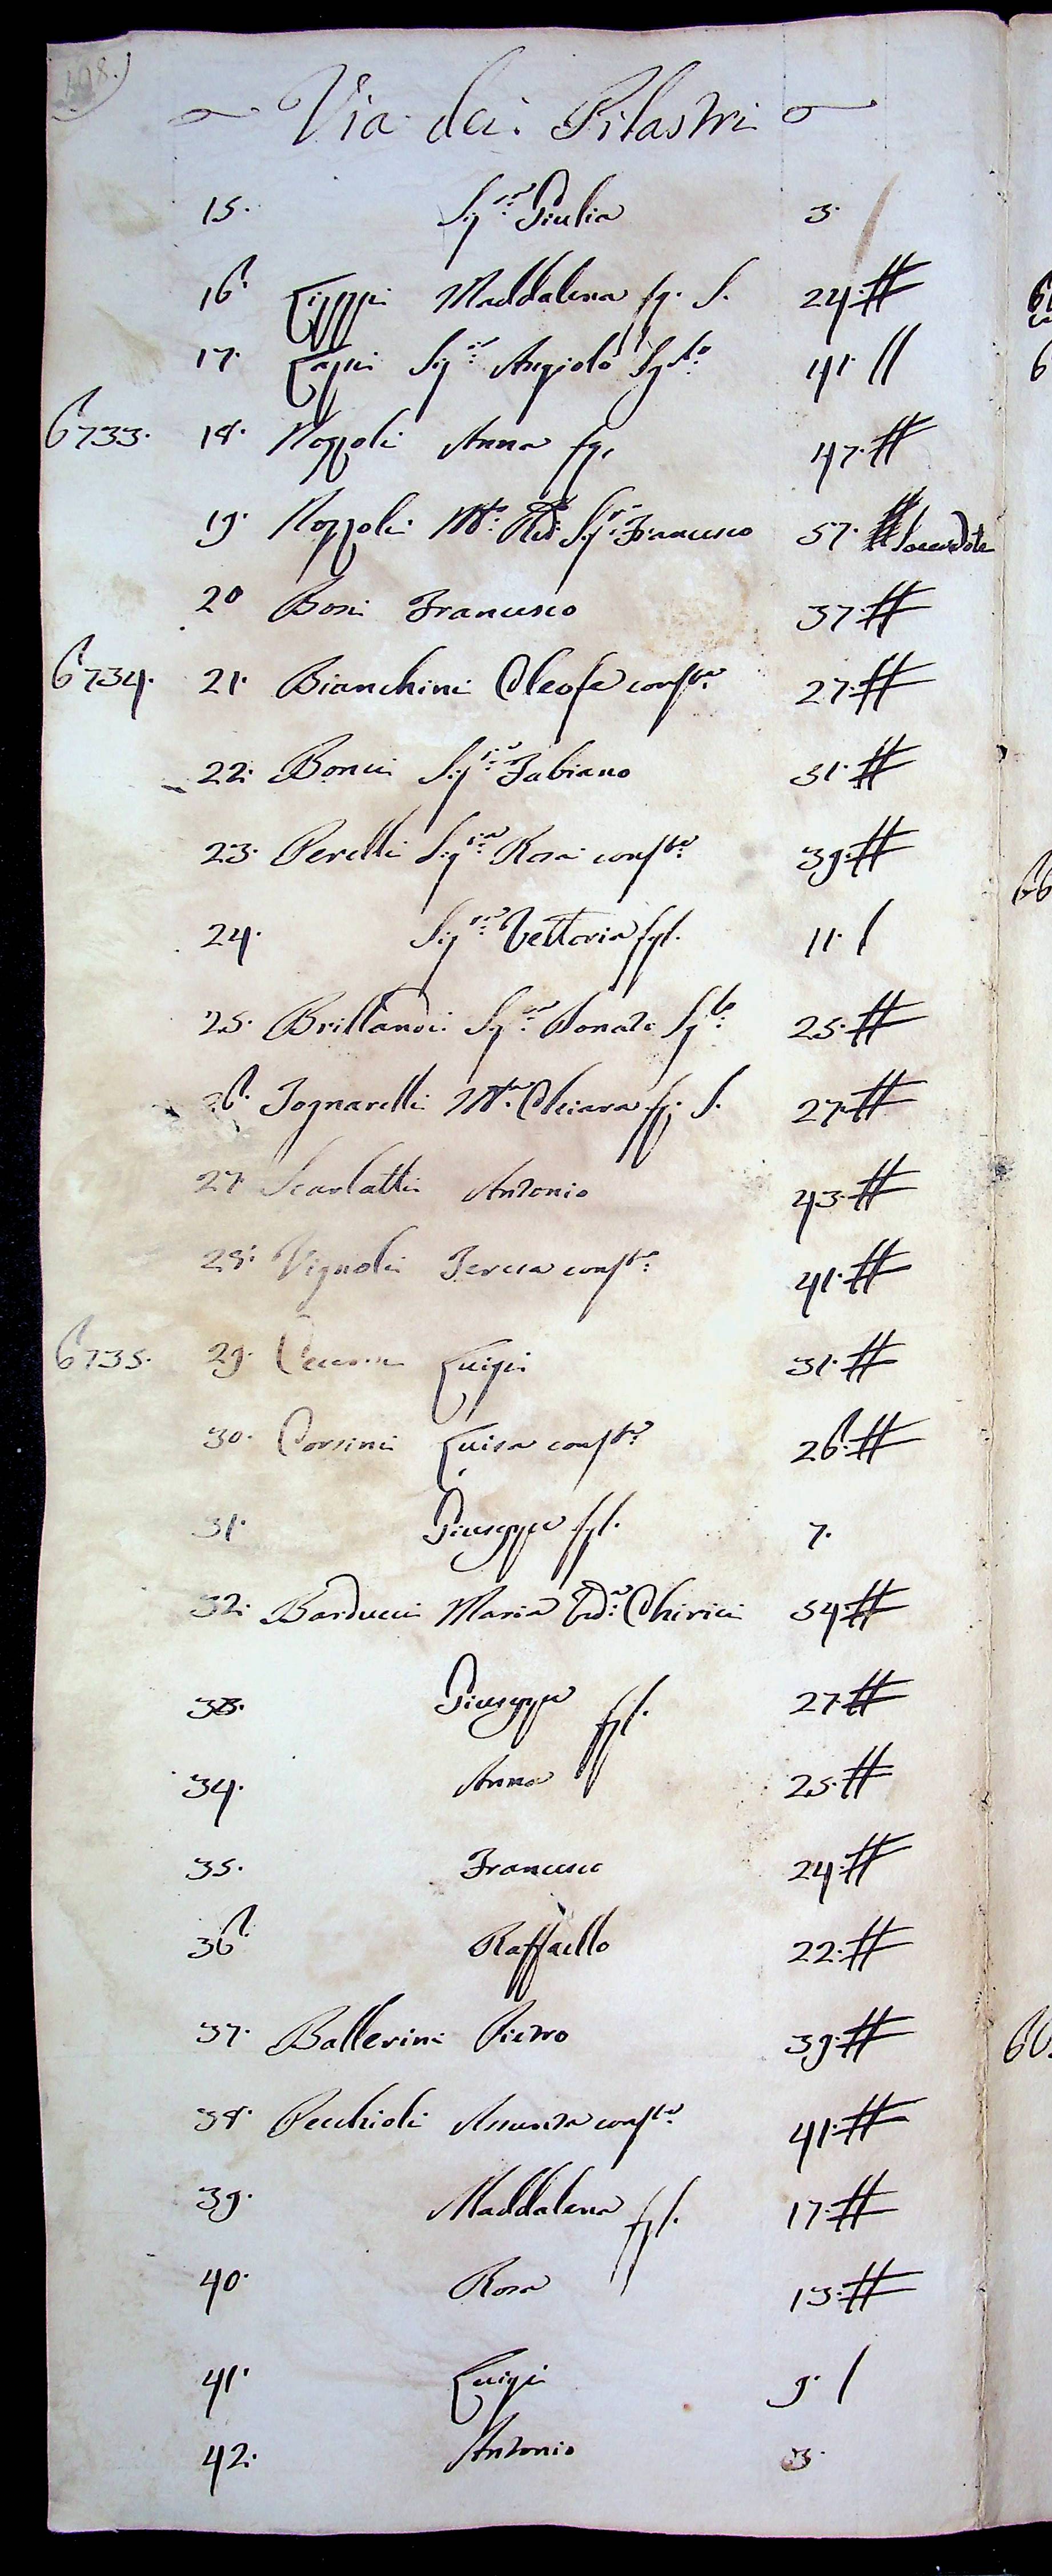 108.
Via dei Pilastri
15. Sig.ra Giulia 3.
16. Lippi Maddalena fg. S. 24. #
17. Lapii Sig.re Angiolo Sg.to 41. //
6733. 18. Nozzoli Anna fg. 47. #
19. Nozzoli M.to Rdo Sig.r Francesco 57. # Sacerdote
20 Boni Francesco 37. #
6734. 21. Bianchini Cleofe cons.te 27. #
22. Bonci Sig.re Fabiano 31. #
23. Perelli Sig.ra Rosa cons.te 39. #
24. Sig.ra Vettoria fgl. 11. /
25. Brillandi Sig.re Donato Sg.to 25. #
26. Tognarelli M.a Chiara fg. S. 27. #
27. Scarlatti Antonio 43. #
28. Vignoli Teresa cons.te 41. #
6735. 29. Luigi 31. #
30. Corsini Luisa cons.te 26. #
31. Giuseppe fgl. 7.
32. Barducci Maria Ved.a Chirici 54. #
33. Giuseppe fgl. 27. #
34. Anna 25. #
35. Francesco 24. #
36. Raffaello 22. #
37. Ballerini Pietro 39. #
38. Pecchioli Assunta cons.te 41. #
39. Maddalena fgl. 17. #
40. Rosa 13. #
41. Luigi 9. /
42. Antonio 3.